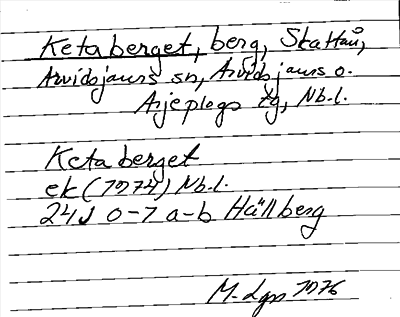 Ketaberget, berg, Skattån,
Arvidsjaurs sn, Arvidsjaurs o.
Arjeplogs tg, Nb.l.
Ketaberget
ek (1974) Nb.l.
24J 0-7 a-b Hällberg
M-Lgn 1976